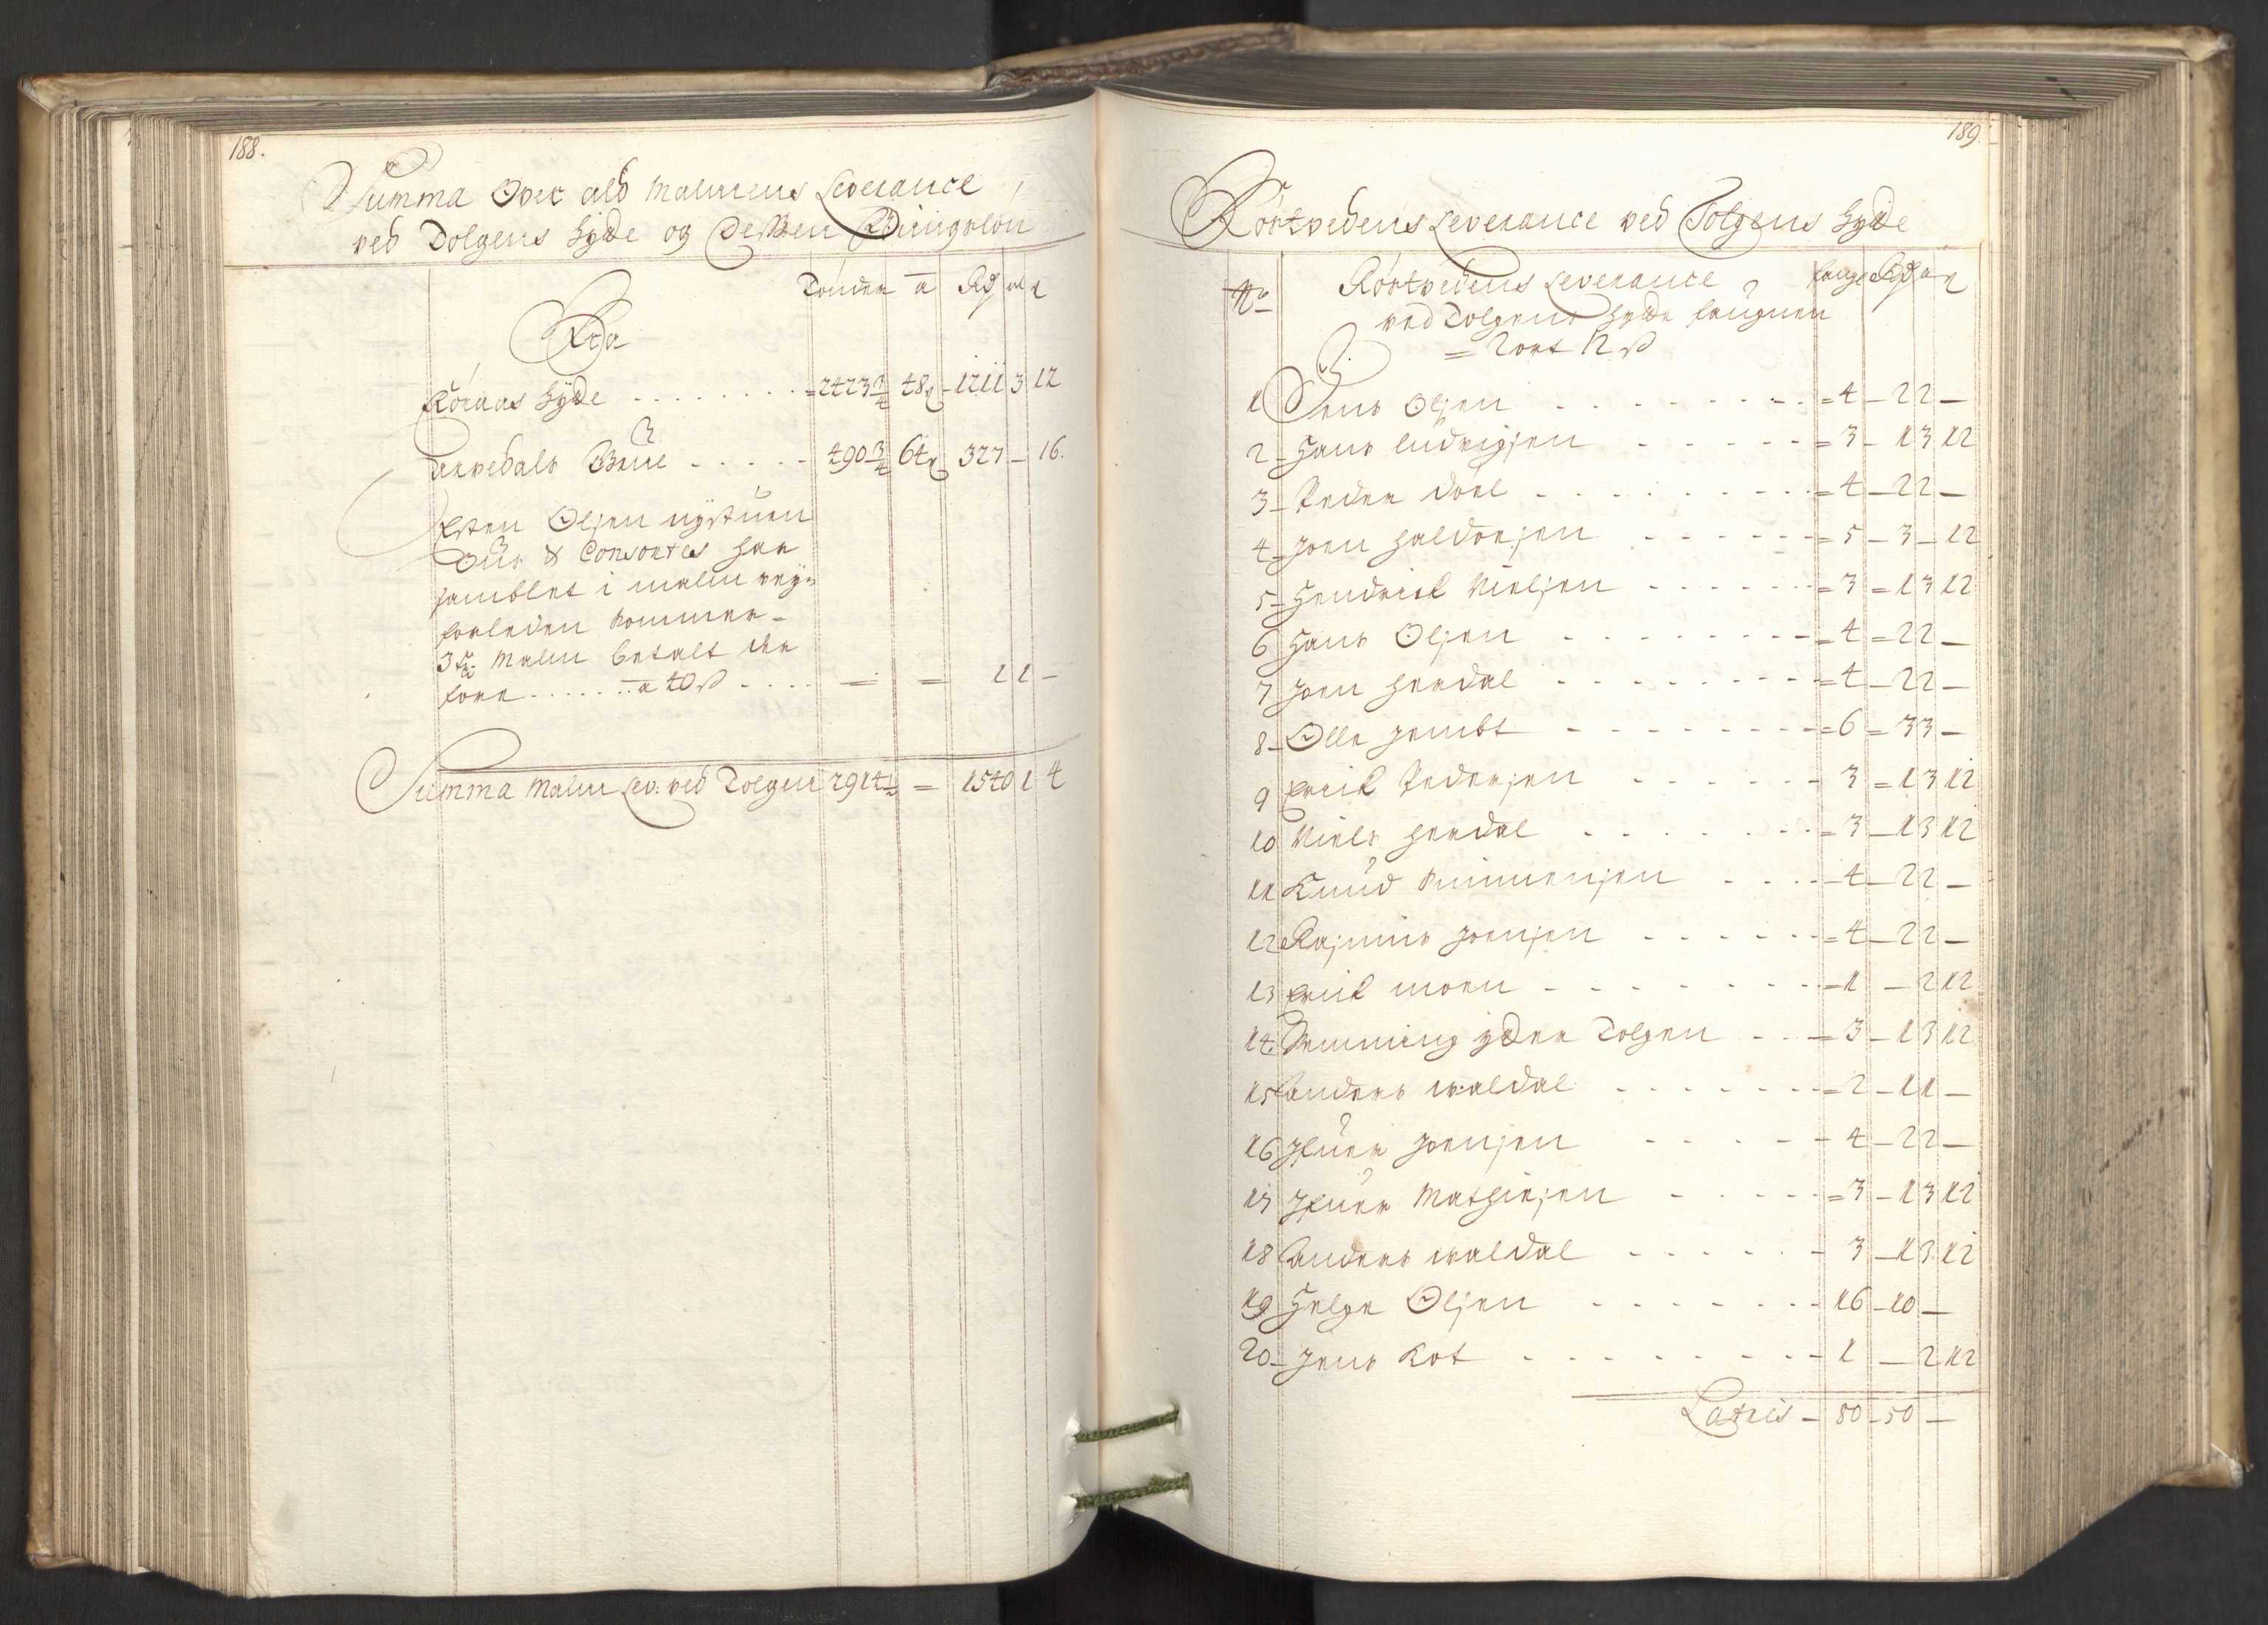 188.
Summa Over ald Malmens Leverance
ved Tolgens Hytte og Dessen Bringeløn
Tønder a Rd ort s
Fra
Røraas Hytte . . . . . . . = 2423 3/4 48s - 1211 3 12
Arvedals Brue . . . . . - 490 3/4 64s 327 - 16.
Esten Olsen nystuen
Dus & Consortes har
samblet i malm vey=
forleden Sommer -
3 Tr: Malm betalt der
fore . . . . . . a 40 s . . . . = = 1 1 -
Summa Malm Lev. ved Tolgen 2914 1/2 = 1540 1 4
189.
Røstvedens Leverance ved Tolgens Hytte
No Røstvedens Leverance fauge Rd o s
ved Tolgens Hytte faugnen
= 2 ort 12 s
1 Jens Olsen . . . . . . . . = 4 - 2 2 -
2 - Hans Ludvigsen - - - - - = 3 - 1 3 12
3 - Peder Döel - . . . . . . . = 4 - 2 2 -
4 - Joen Haldorsen . - - - - - = 5 - 3 - 12
5 - Hendrich Nielsen - - - - - = 3 = 1 3 12
6 Hans Olsen . - - - - - - = 4 = 2 2 -
7 Joen Herdal - - - - - - - = 4 - 2 2 -
8 - Olle Jembt - - - - - - - = 6 = 3 3 -
9 Erich Pedersen . - - - - - 3 = 1 3 12
10 Niels Herdal . . . . . . . = 3 - 1 3 12
11 Knud Simmensen . . . . - 4 - 2 2 -
12 Rasmus Joensen - - - - - = 4 - 2 2 -
13 Erich moen - - - - - - - = 1 - 2 12
14. Nemming ytter Tolgen . - - = 3 - 1 3 12
15 Anders waldal . - - - - - = 2 - 1 1 -
16 Ifuer Joensen . - - - - 4 - 2 2 -
17 Ifuer Mathiesen - - - - - = 3 - 1 3 12
18 Anders waldal - - - - - - 3 - 1 3 12
19 Helge Olsen . - - - - - - 16 - 10 -
20 - Jens Kot . - - - - - - - 1 - 2 12
Lateris - 80 - 50 -